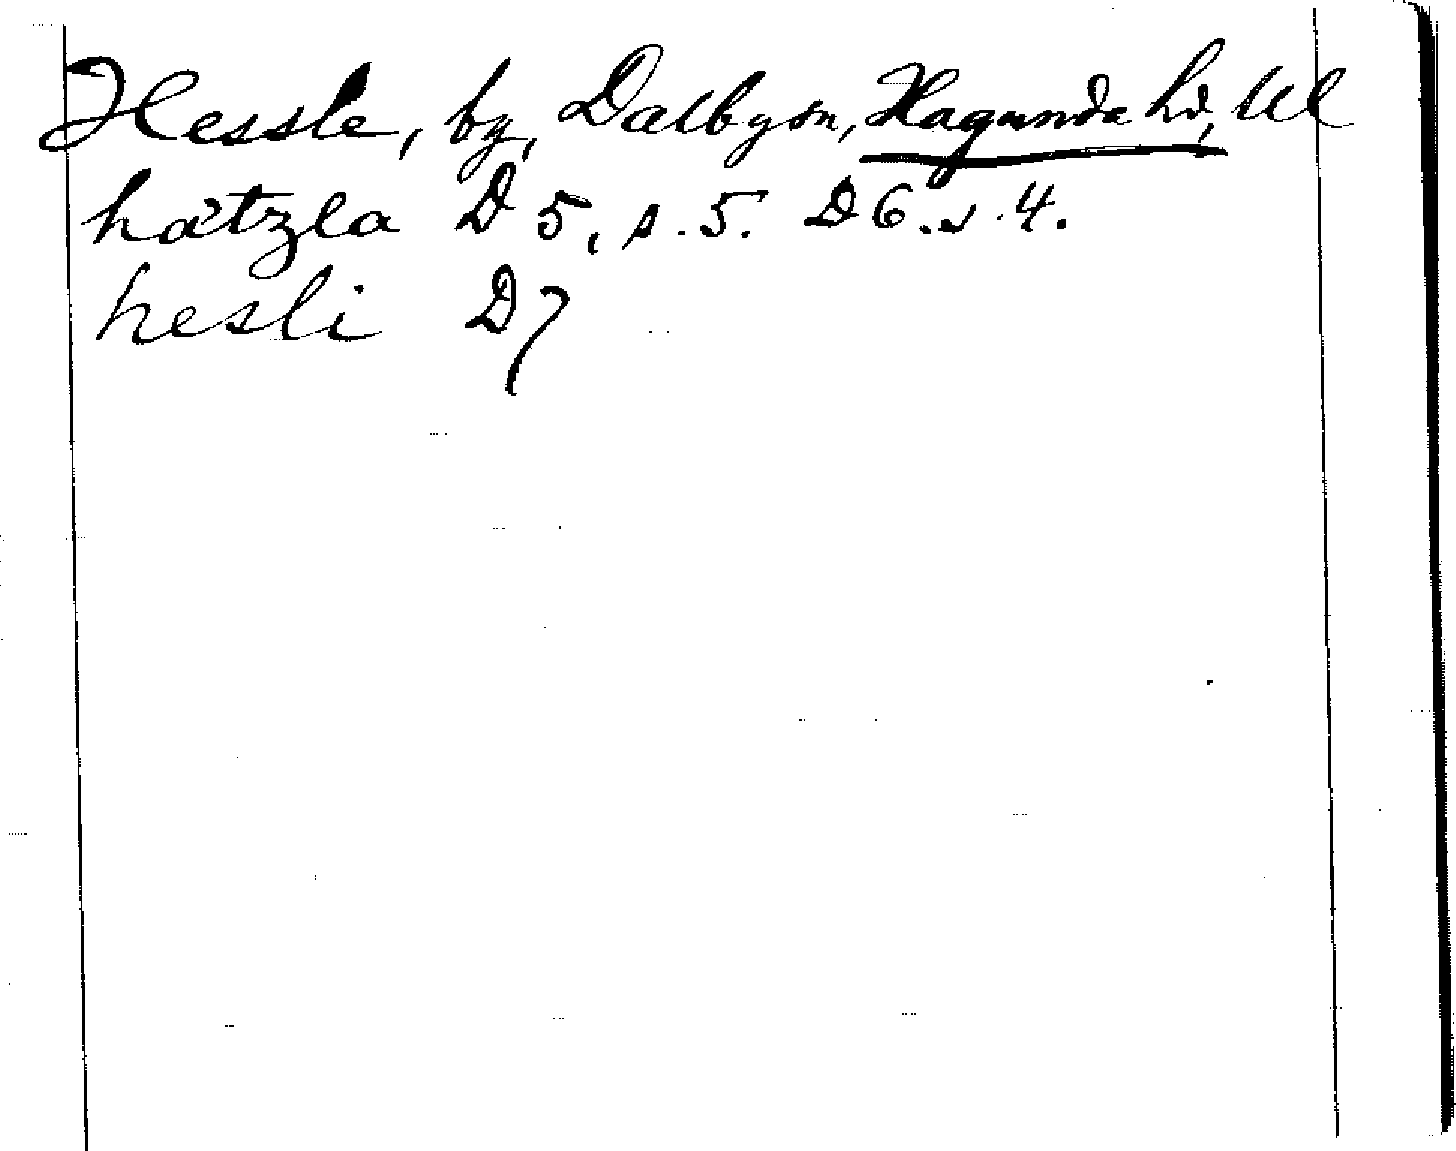 Hessle, by, Dalby sn, Hagunda hd, Ul
hätzla D 5, s. 5. D 6. s. 4.
hesli D7